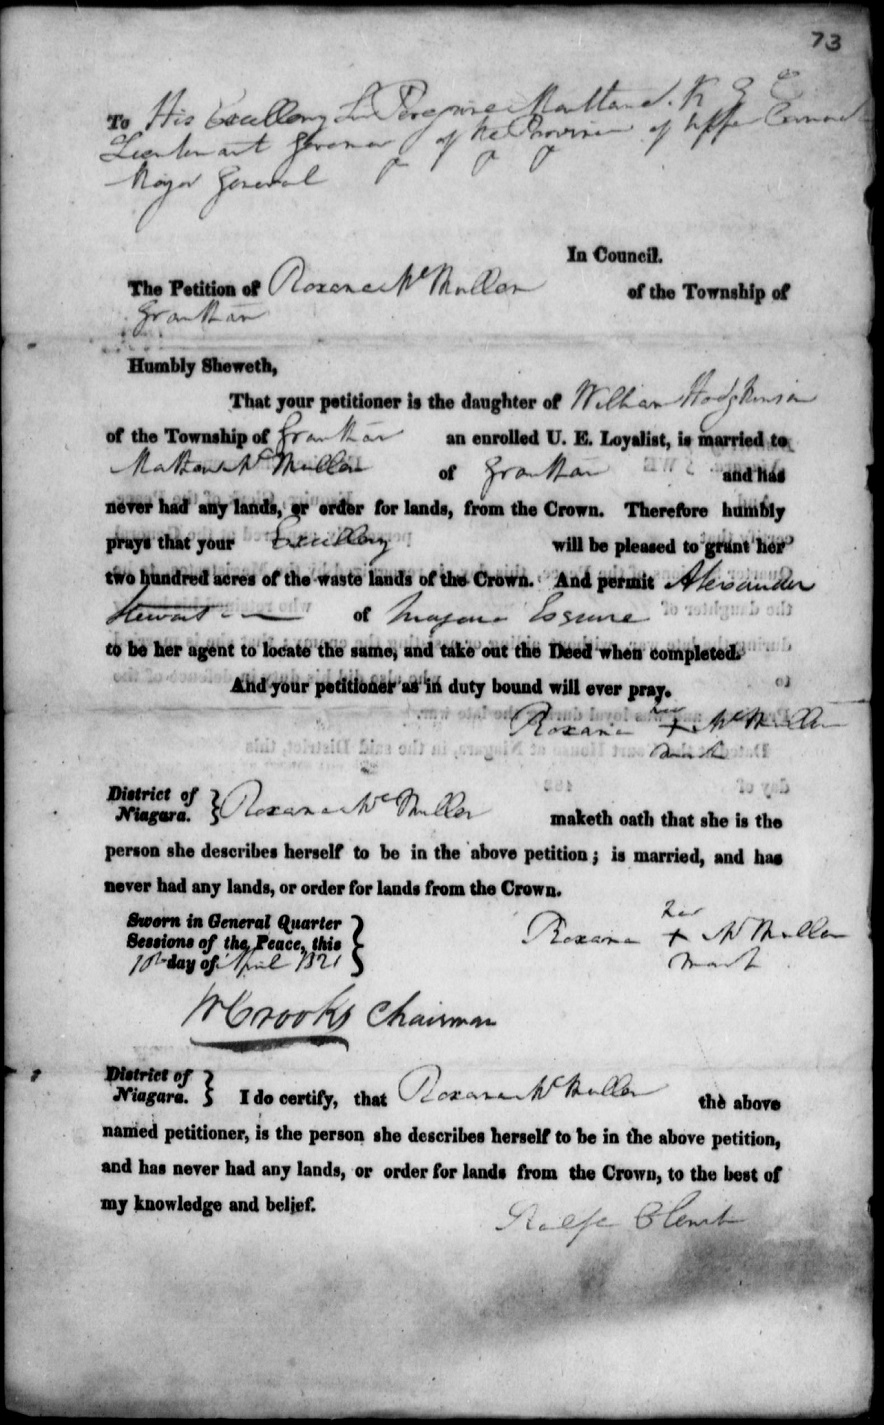 73
To His Excellency Sir Peregrine Maitland. K G C
Lieutenant Governor of the Province of Upper Canada
Major General
In Council.
The Petition of Roxana Mc Mullen of the Township of
Grantham
Humbly Sheweth,
That your petitioner is the daughter of William Hodgkinson
of the Township of Grantham an enrolled U. E. Loyalist, is married to
Mathew Mc Mullen of Grantham and has
never had any lands, or order for lands, from the Crown. Therefore humbly
prays that your Excellency will be pleased to grant her
two hundred acres of the waste lands of the Crown. And permit Alexander
Stewart of Niagara Esquire
to be her agent to locate the same, and take out the Deed when completed.
And your petitioner as in duty bound will ever pray.
Roxana her + Mc Mullen
mark
District of
Niagara. } Roxana Mc Mullen maketh oath that she is the
person she describes herself to be in the above petition; is married, and has
never had any lands, or order for lands from the Crown.
Sworn in General Quarter
Sessions of the Peace, this
10th day of April 1821
Roxana her + Mc Mullen
mark
W Crooks Chairman
District of
Niagara. } I do certify, that Roxana Mc Mullen the above
named petitioner, is the person she describes herself to be in the above petition,
and has never had any lands, or order for lands from the Crown, to the best of
my knowledge and belief.
Ralfe Clench